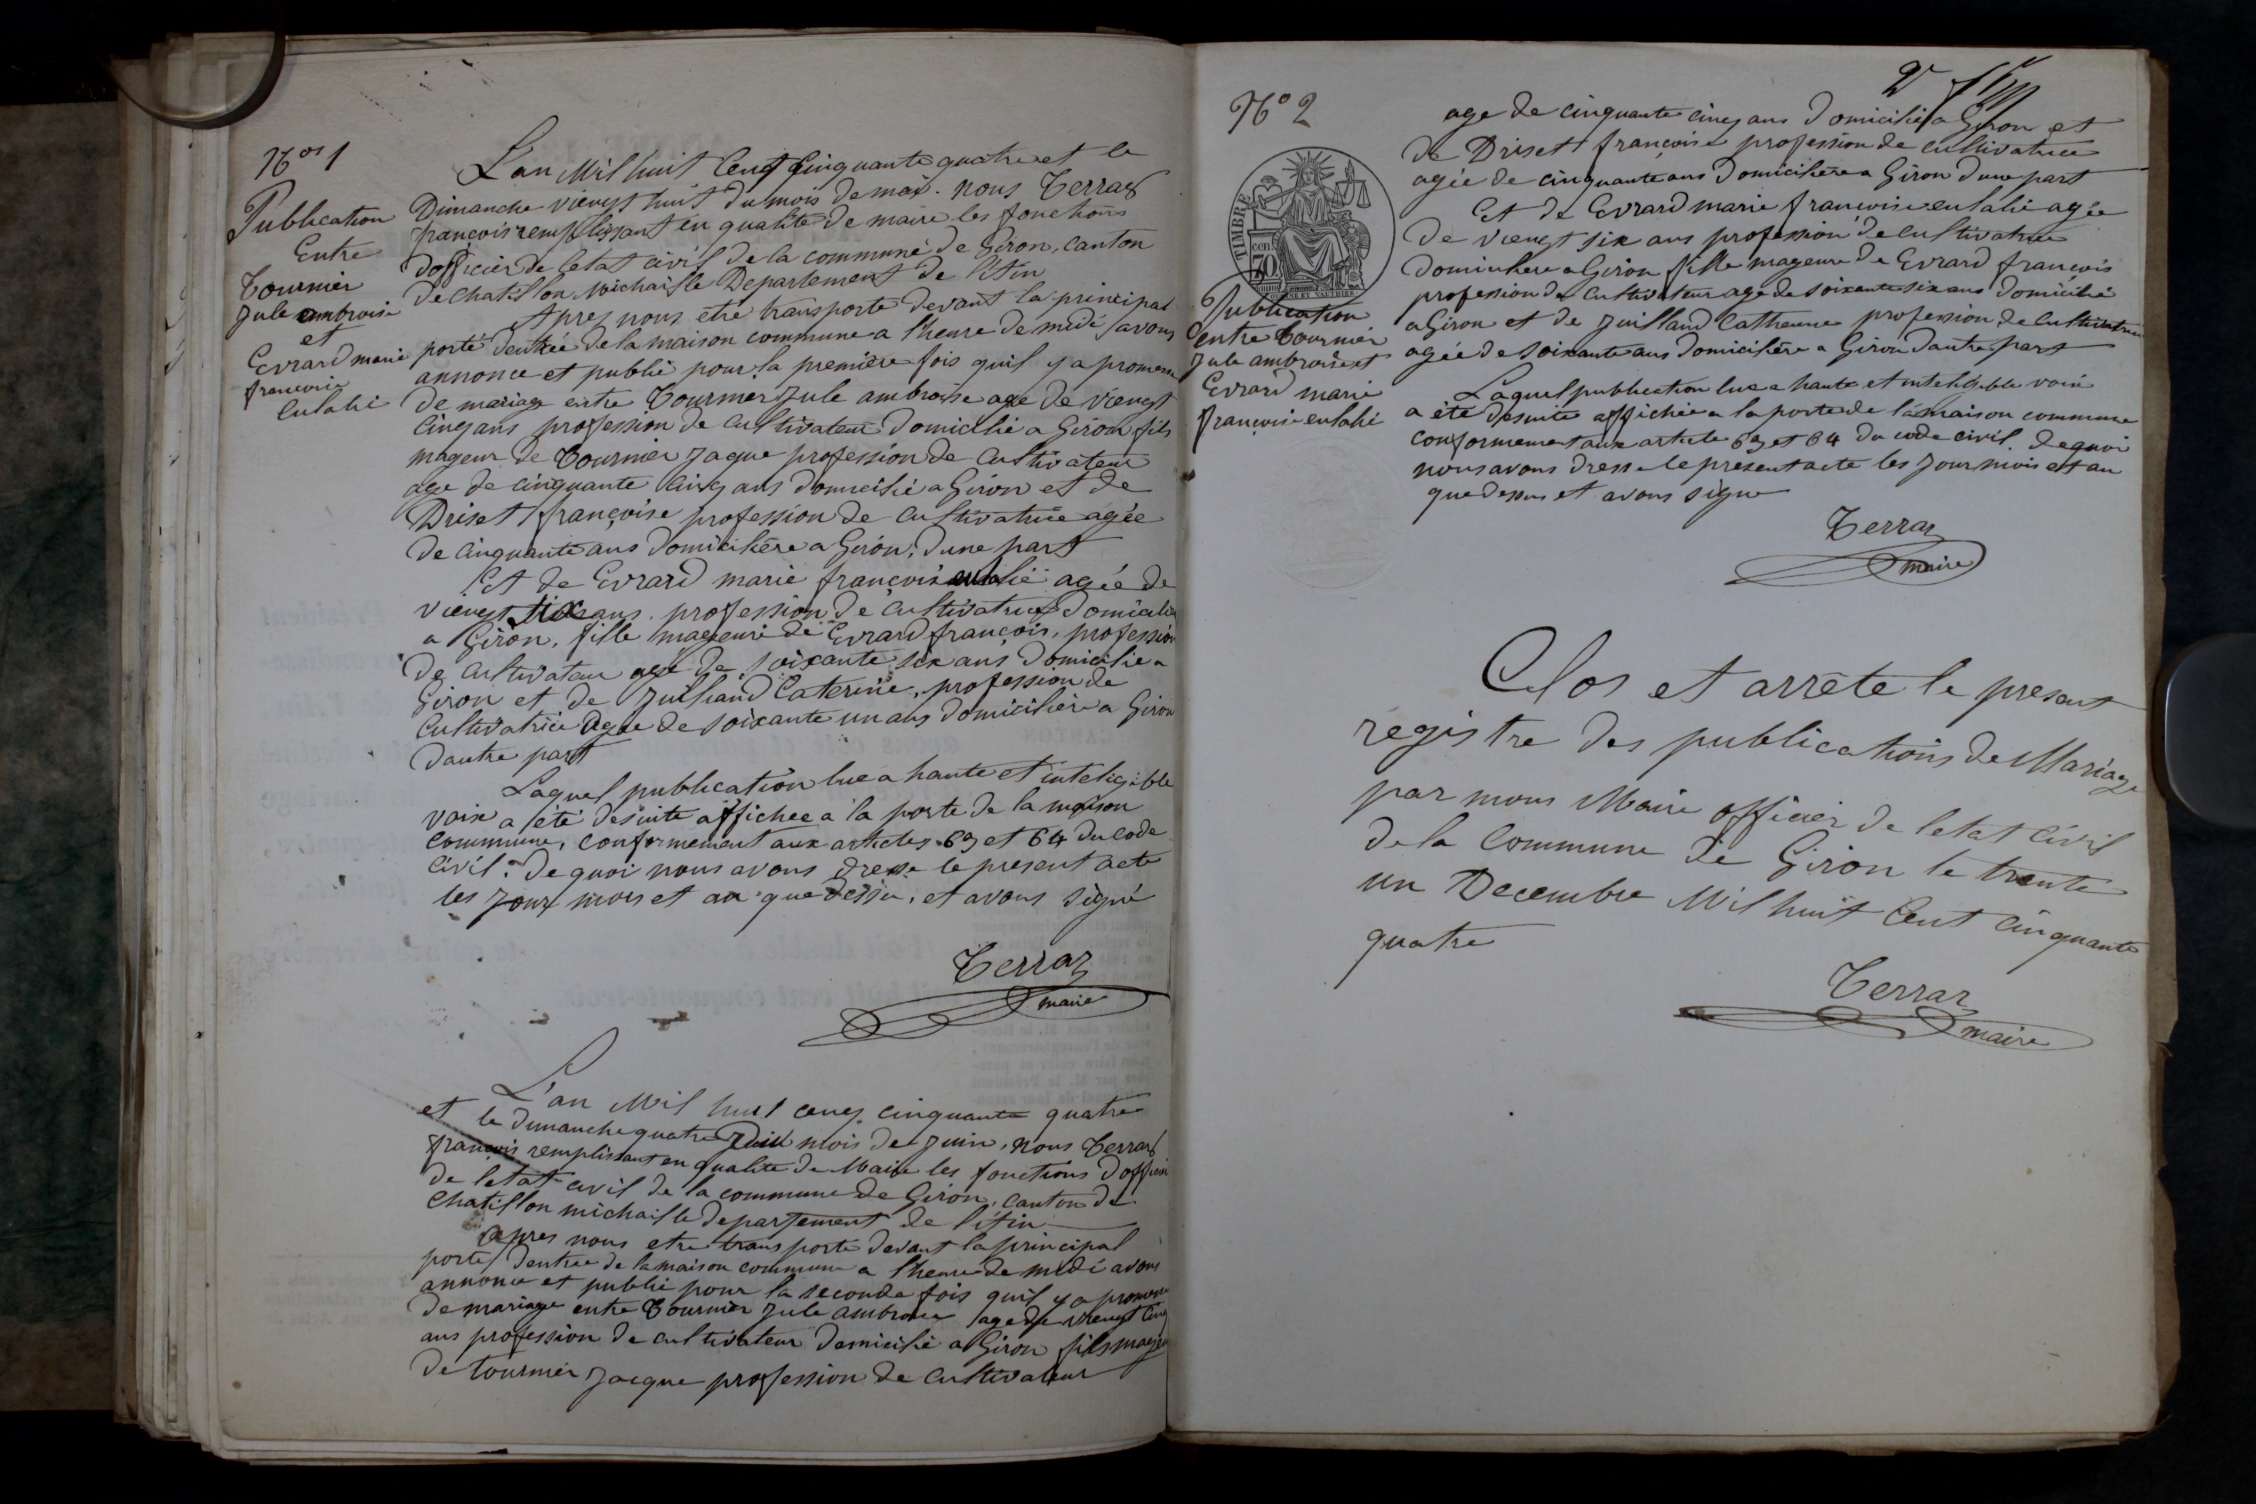 Nos 1
Publication
Entre
Tournier
Jule ambroise
et
Evrard marie
francoise
Eulalie
L'an Mil huit Cent Cinquante quatre et le
Dimanche viengt huit du mois de mai. nous Terraz
françois remplissant en qualité de maire les fonctions
dofficier de letat civil de la commune de Giron, canton
de chatillon Michaille Departement de l'Ain
Apres nous etre transporte devant la principal
porte dentrée de la maison commune a l'heure de midi, avons
annonce et publié pour la première fois quil y a promesse
de mariage entre Tournier Jule ambroise age de viengt
Cinq ans profession de Cultivateur Domicilié a Giron fils
mageur de Tournier Jaque profession de Cultivateur
age de cinquante Cinq ans domicilié a Giron et de
Driset françoise profession de Cultivatrice agée
de Cinquante ans domicilière a Giron, d'une part
Et de Evrard marie françoise eulalie agée de
viengt six ans profession de Cultivatrice domicilie
a Giron, fille mageure de Evrard françois, profession
de Cultivateur age de soixante six ans Domicilie a
Giron et de Juilland Caterine, profession de
Cultivatrice agee de soixante un ans domicilière a Giron
dautre part
Laquel publication lue a haute et inteligible
voix a été desuite affichee a la porte de la maison
Commune, conformement aux articles 63 et 64 du Code
Civil. De quoi nous avons dresse le present acte
les jour mois et an que dessu, et avons signé
Terraz
maire
L'an Mil huit cenq cinquante quatre
et le dimanche quatre Juin mois de juin, nous Terraz
françois remplissant en qualite de Maire les fonctions dofficier
de letat civil de la commune de Giron, canton de
Chatillon michaille departement de l'Ain
Apres nous etre transporte devant la principal
porte dentree de la maison commune a l'heure de midi avons
annonce et publié pour la seconde fois quil y a promesse
de mariage entre Tournier Jule ambroise age de viengt Cinq
ans profession de cultivateur domicilié a Giron fils mageur
de Tournier Jacque profession de Cultivateur
No 2
TIMBRE
Publication
Entre Tournier
Jule ambroise et
Evrard marie
françoise eulalie
age de cinquante cinq ans domicilié a Giron et
de Driset françoise profession de cultivatrice
agée de cinquante ans domicilière a Giron d'une part
Et de Evrard marie françoise eulalie agée
de viengt six ans profession de Cultivatrice
domicilière a Giron fille mageure de Evrard françois
profession de Cultivateur age de soixante six ans domicilié
a Giron et de Juilland Catherine profession de Cultivatrice
agée de soixante ans domicilière a Giron dautre part
Laquel publication lue a haute et inteligible voix
a été desuite affichée a la porte de la maison commune
conformement aux article 63 et 64 du code civil. de quoi
nous avons dresse le present acte les jour mois et an
que dessus et avons signe
Terraz
maire
Clos et arrête le present
registre des publications de Mariage
par nous Maire officier de letat civil
de la Commune de Giron le trente
un Decembre Mil huit Cent Cinquante
quatre
Terraz
maire